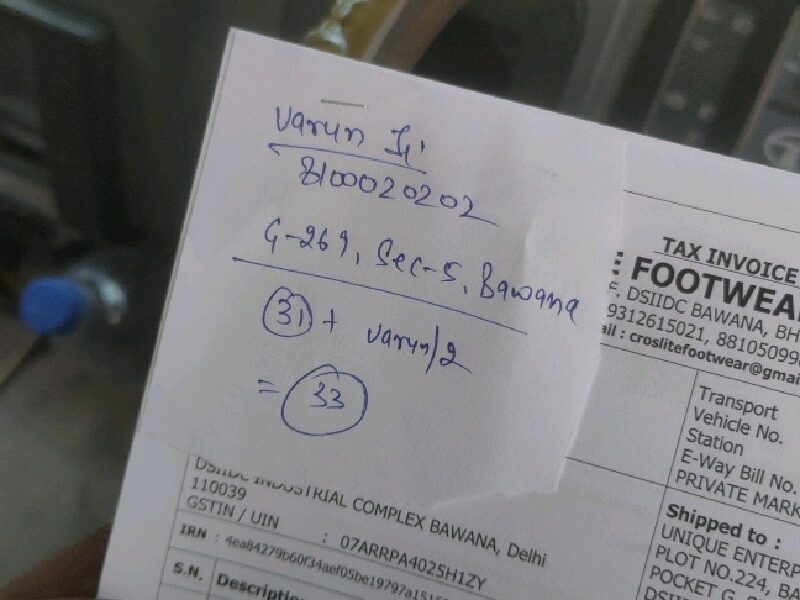 varun Ji
8100020202
G-269, Sec-5, Bawana
31 + varun/2
= 33
TAX INVOICE
E FOOTWEA
F. DSIIDC BAWANA, BH
9312615021, 88105099
ail : croslitefootwear@gmai
Transport
Vehicle No.
Station
E-Way Bill No.
PRIVATE MARK
DSIIDC INDUSTRIAL COMPLEX BAWANA, Delhi
110039
GSTIN / UIN : 07ARRPA4025H1ZY
IRN : 4ea84279b60f34aef05be19797a1516
S.N. Description
Shipped to :
UNIQUE ENTERP
PLOT NO.224, BA
POCKET G,
DSII